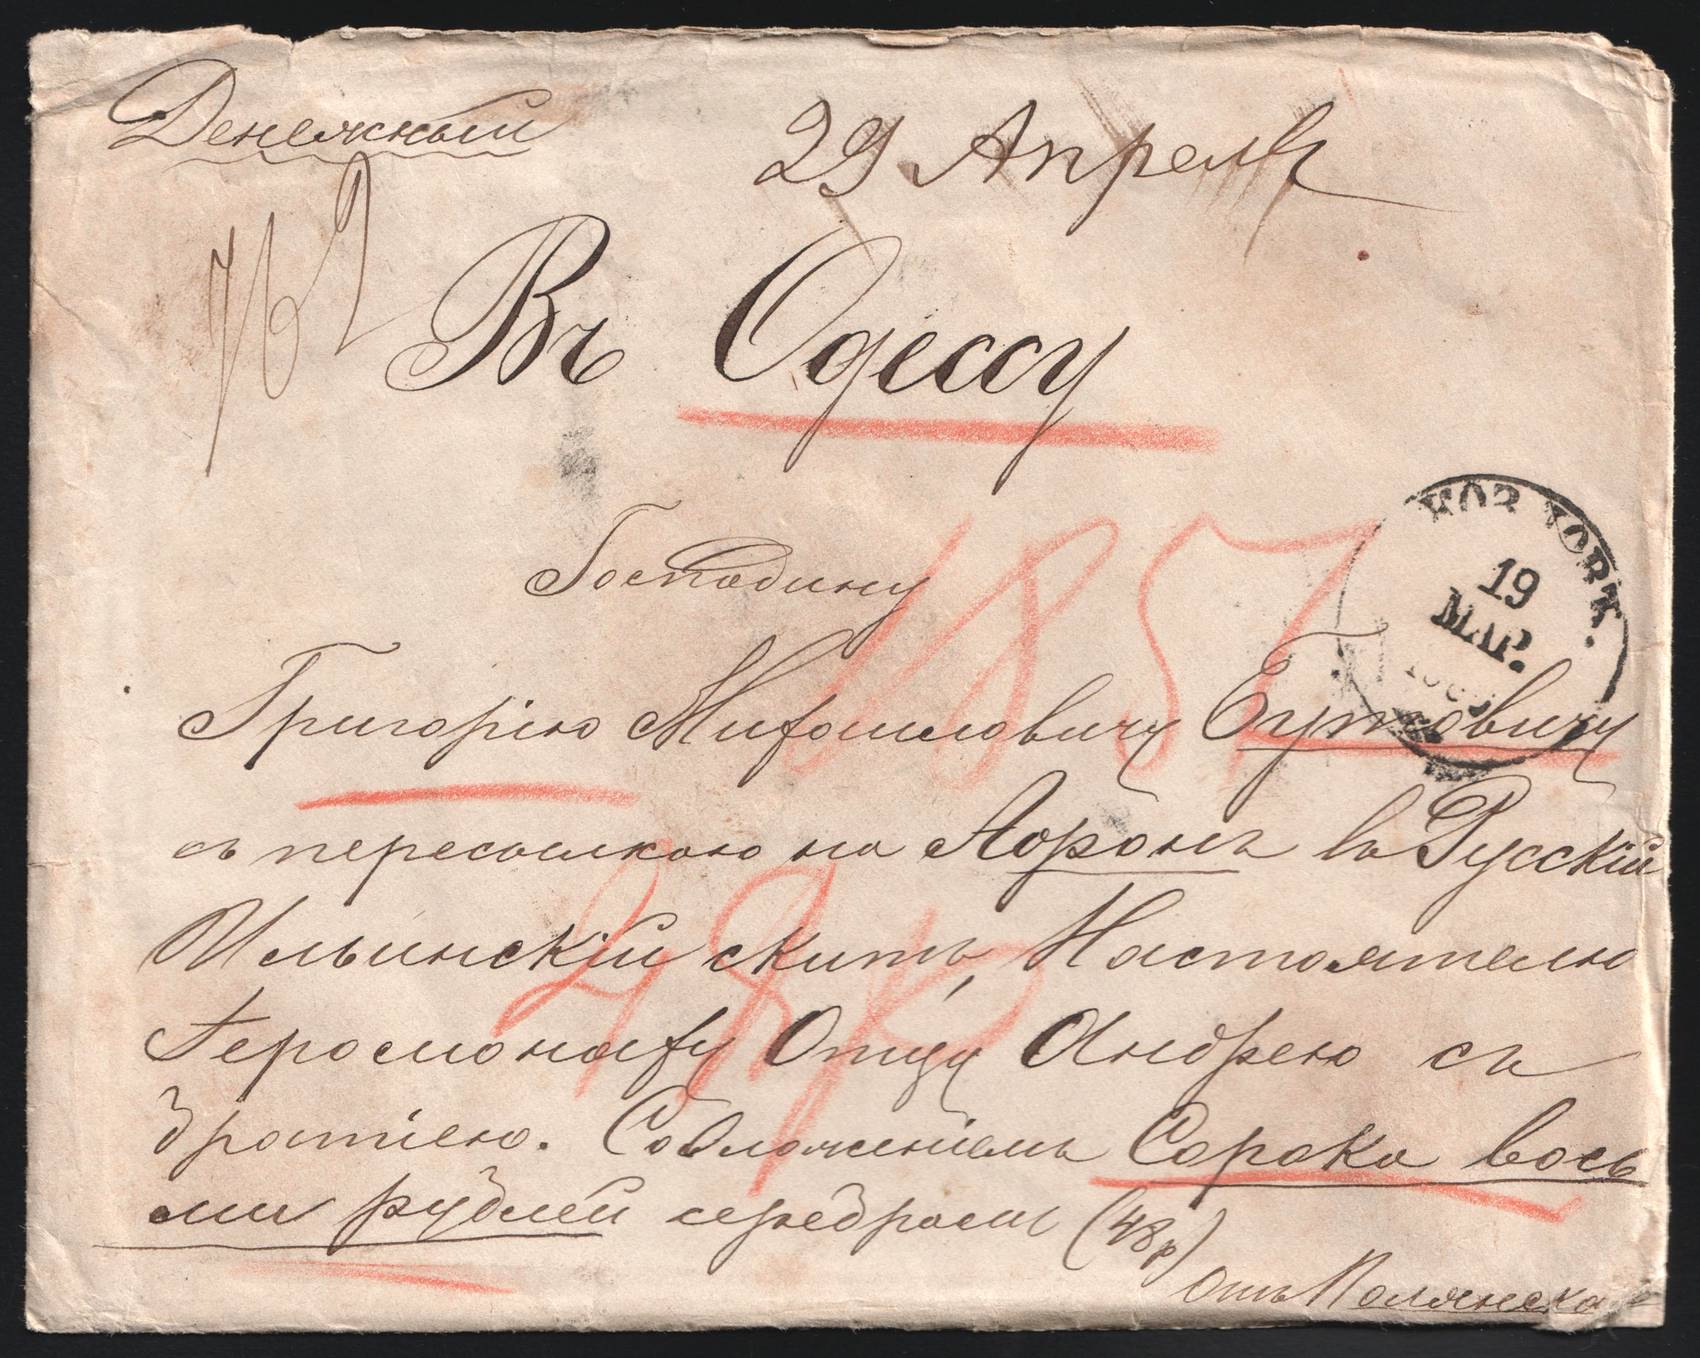 Денежный
29 Апрель
762
Въ Одессу
Господину
1857
Григорію Михайловичу Бутовичу
съ пересылкою на Афонъ въ Русскій
Ильинскій скитъ, Настоятелю
48р
Іеромонаху Отцу Андрею съ
братіею. Со вложеніемъ Сорока вось
ми рублей серебромъ (48р)
Отъ Полянска
19
МАР.